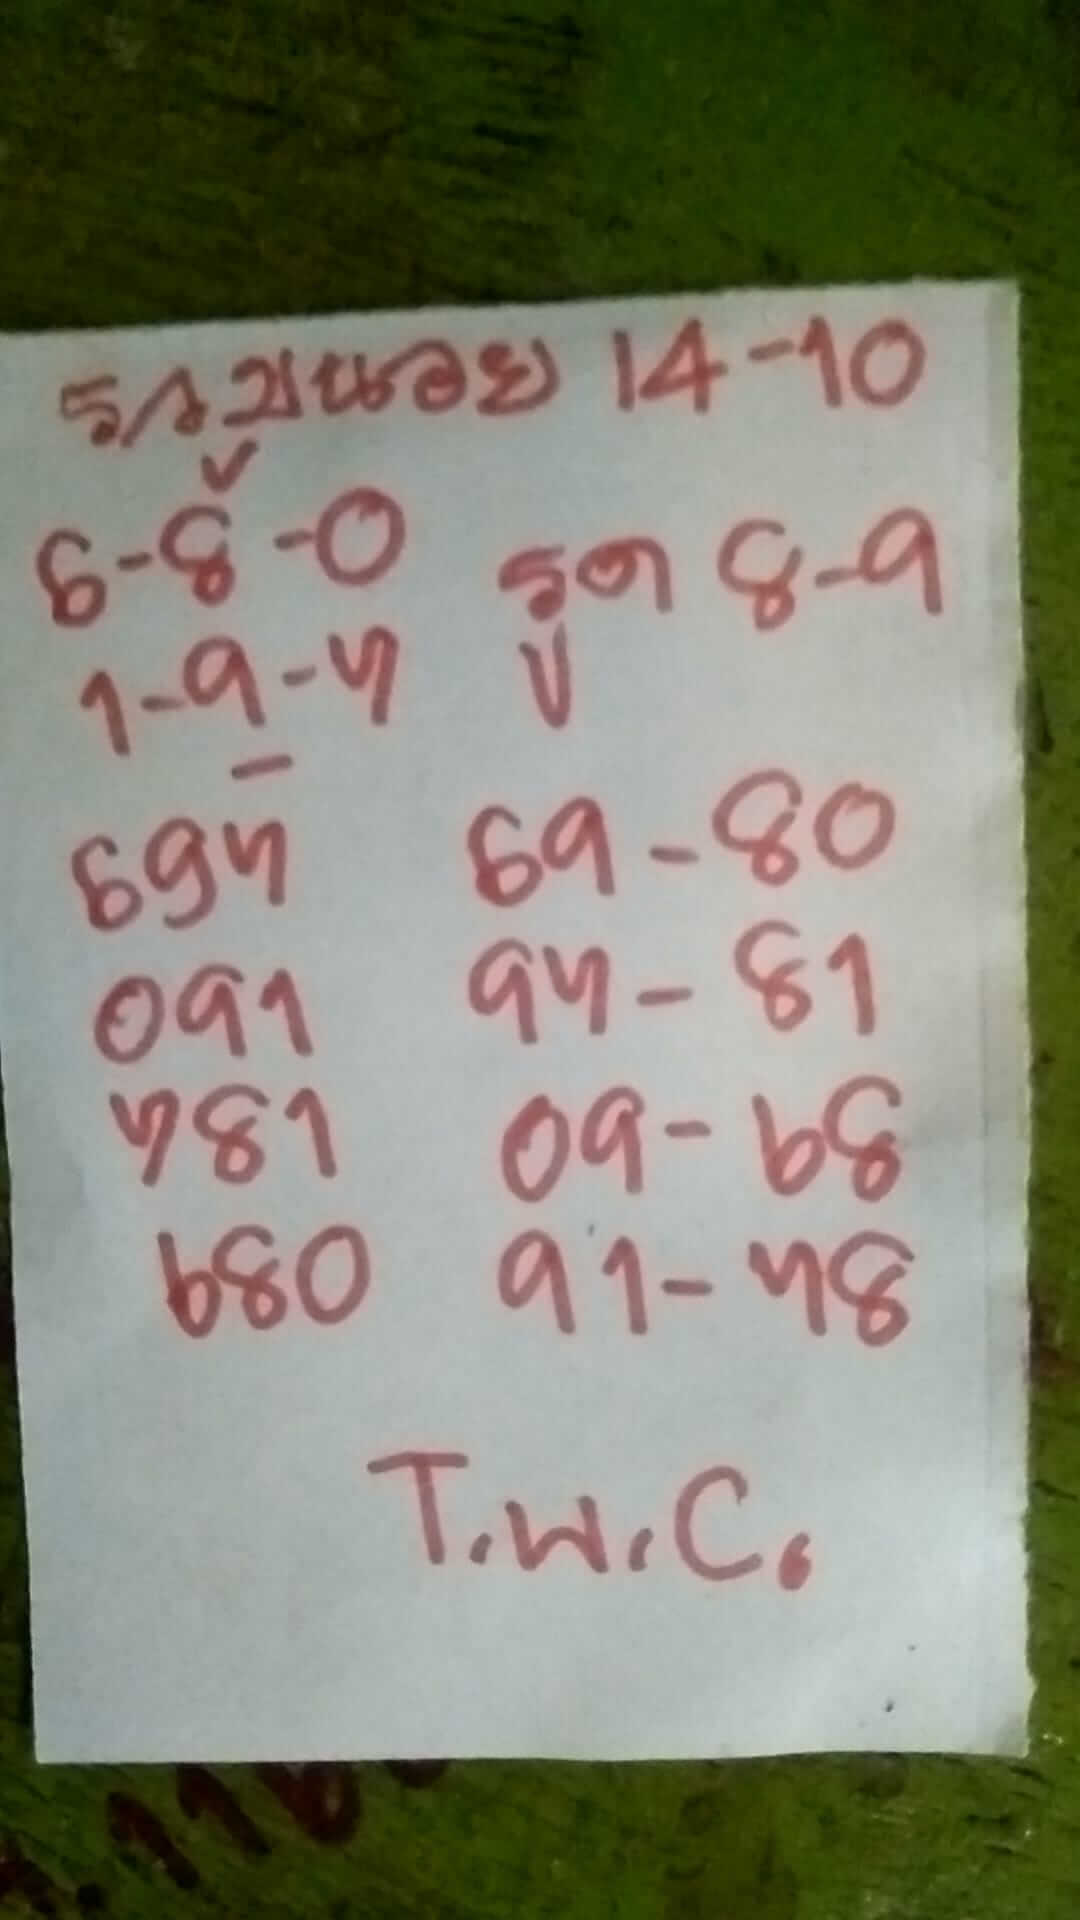 14-10
6-8-0 รูด 8-9
1-9-4
694 69-80
091 94-81
481 09-68
680 91-48
T.W.C.